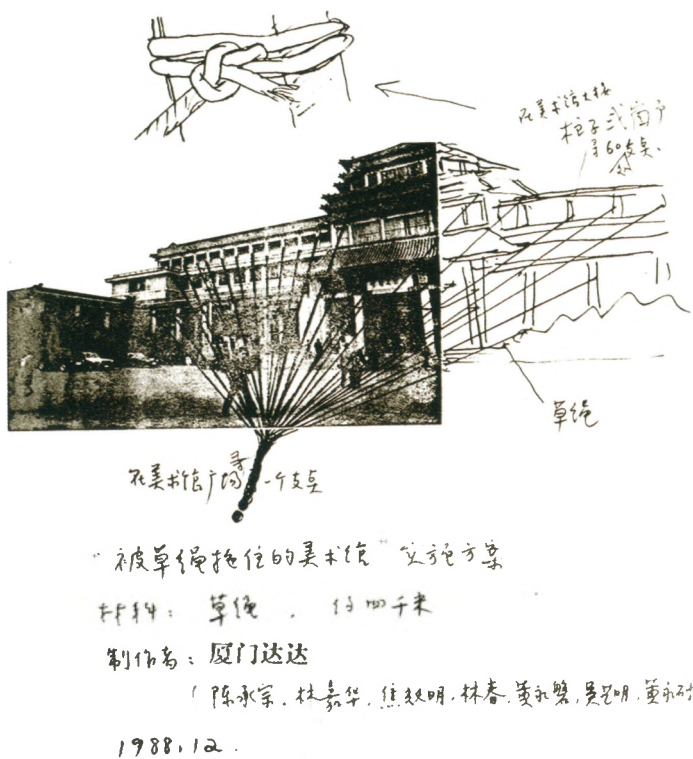 在美术馆大楼
柱子或窗户
寻60支点.
草绳
在美术馆广场寻一个支点
"被草绳拖住的美术馆"实施方案
材料: 草绳, 约四千米
制作者: 厦门达达
(陈承宗. 林嘉华. 焦耀明. 林春. 黄永磐. 吴艺明. 黄永砯
1988.12.